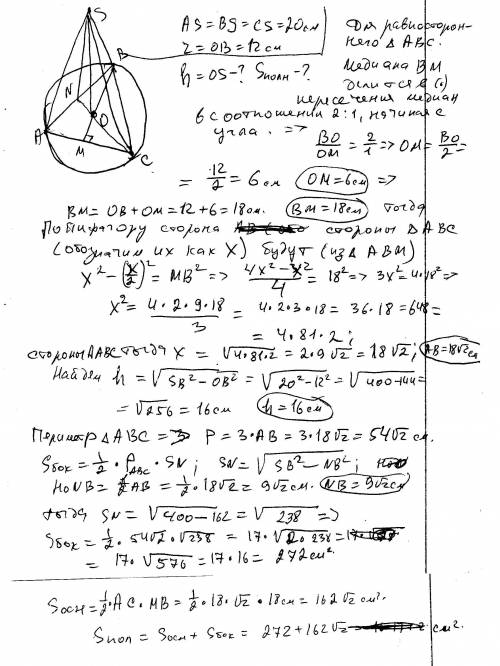 S
AS = BS = CS = 20см
Для равносторон-
r = OB = 12см
него Δ ABC.
B
h = OS - ? Sполн - ?
Медиана BM
N
делится в (·)
пересечения медиан
O
в соотношении 2:1, начиная с
A
угла. => BO/OM = 2/1 => OM = BO/2 =
M
C
= 12/2 = 6см OM = 6см =>
BM = OB + OM = 12 + 6 = 18см. BM = 18см тогда
По Пифагору сторона стороны Δ ABC
(обозначим их как X) будут (из Δ ABM)
X² - (X/2)² = MB² => (4X² - X²)/4 = 18² => 3X² = 4·18² =>
X² = (4·2·9·18)/3 = 4·2·3·18 = 36·18 = 648 =
= 4·81·2;
стороны ΔABC тогда X = √4·81·2 = 2·9√2 = 18√2; AB = 18√2см
Найдем h = √SB² - OB² = √20² - 12² = √400 - 144 =
= √256 = 16см h = 16см
Периметр Δ ABC => P = 3·AB = 3·18√2 = 54√2 см.
Sбок = 1/2 · PABC · SN; SN = √SB² - NB²;
Но NB = 1/2 AB = 1/2 · 18√2 = 9√2 см. NB = 9√2см
тогда SN = √400 - 162 = √238 =>
Sбок = 1/2 · 54√2 · √238 = 17·√2·238 =
= 17·√576 = 17·16 = 272см².
Sосн = 1/2 · AC · MB = 1/2 · 18·√2 · 18см = 162√2 см².
Sпол = Sосн + Sбок = 272 + 162√2 см².